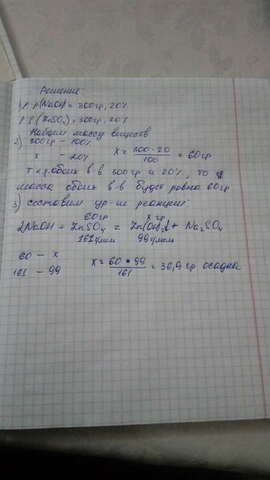 Решение:
1) Р-р(NaOH) = 300гр, 20%
Р-р(ZnSO₄) = 300гр, 20%
Найдем массу веществ
2) 300гр - 100%
x - 20%
x = 300·20/100 = 60гр
т.к. обоих в-в 300гр и 20%, то
масса обоих в-в будет равна 60гр
3) Составим ур-ие реакции:
60гр x гр
2NaOH + ZnSO₄ = Zn(OH)₂↓ + Na₂SO₄
161г/моль 99г/моль
60 - x
161 - 99
x = 60*99/161 = 36,9 гр осадка